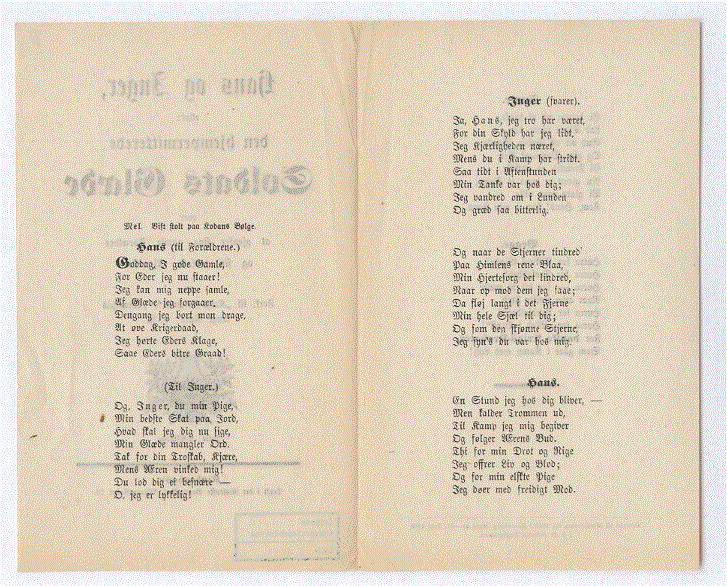 Mel. Vift stolt paa Kodans Bølge.
Hans (til Forældrene.)
Goddag, I gode Gamle,
For Eder jeg nu staaer!
Jeg kan mig neppe samle,
Af Glæde jeg forgaaer.
Dengang jeg bort mon drage,
At øve Krigerdaad,
Jeg hørte Eders Klage,
Saae Eders bitre Graad!
(Til Inger.)
Og, Inger, du min Pige,
Min bedste Skat paa Jord,
Hvad skal jeg dig nu sige,
Min Glæde mangler Ord.
Tak for din Troskab, Kjære,
Mens Æren vinked mig!
Du lod dig ei besnære —
O, jeg er lykkelig!
Inger (svarer).
Ja, Hans, jeg tro har været,
For din Skyld har jeg lidt,
Jeg Kjærligheden næret,
Mens du i Kamp har stridt.
Saa tidt i Aftenstunden
Min Tanke var hos dig;
Jeg vandred om i Lunden
Og græd saa bitterlig.
Og naar de Stjerner tindred'
Paa Himlens rene Blaa,
Min Hjertesorg det lindred,
Naar op mod dem jeg saae;
Da fløj langt i det Fjerne
Min hele Sjæl til dig;
Og som den skjønne Stjerne,
Jeg syn's du var hos mig.
Hans.
En Stund jeg hos dig bliver, —
Men kalder Trommen ud,
Til Kamp jeg mig begiver
Og følger Ærens Bud.
Thi for min Drot og Rige
Jeg offrer Liv og Blod;
Og for min elskte Pige
Jeg døer med freidigt Mod.